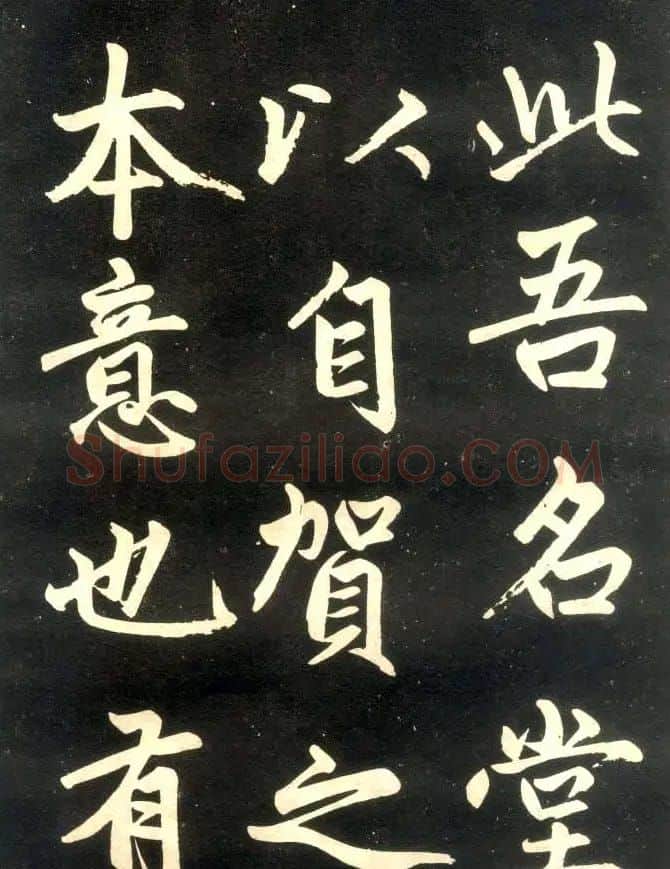 此吾名堂
以自賀之
本意也有
Shufaziliao.COM